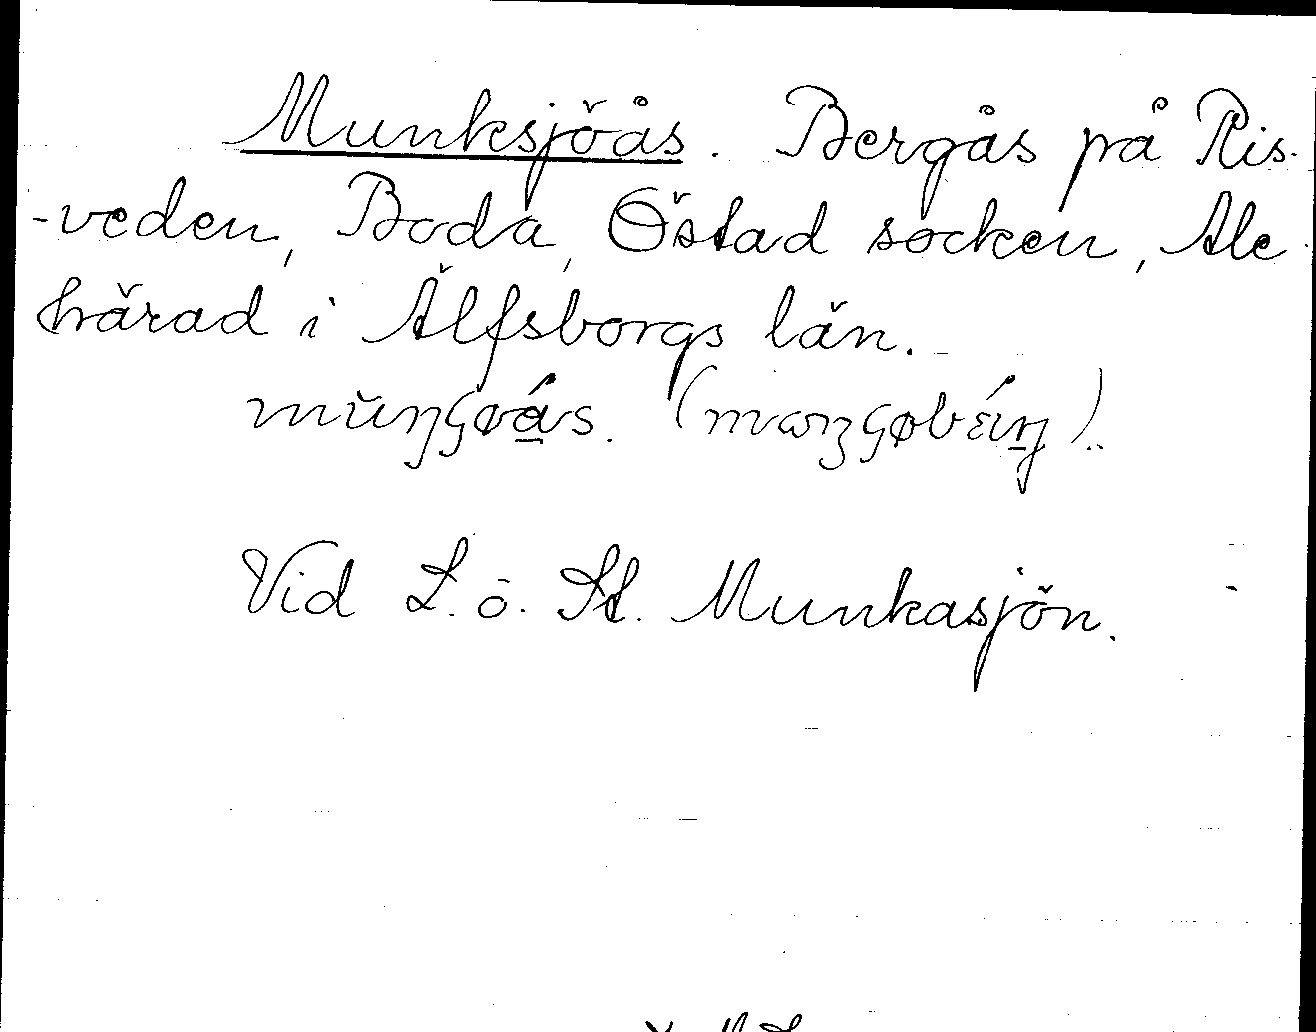 Munksjöås. Bergås på Ris-
-veden, Boda, Östad socken, Ale
härad i Älfsborgs län.
Vid L. o. St. Munkasjön.